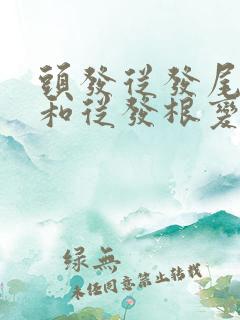 頭發從發尾
和從發根變
绿無
未任同意禁止转载